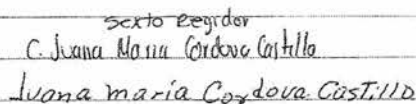 Sexto Regidor
C. Juana Maria Cordova Castillo
Juana maría Cordova CasTillo